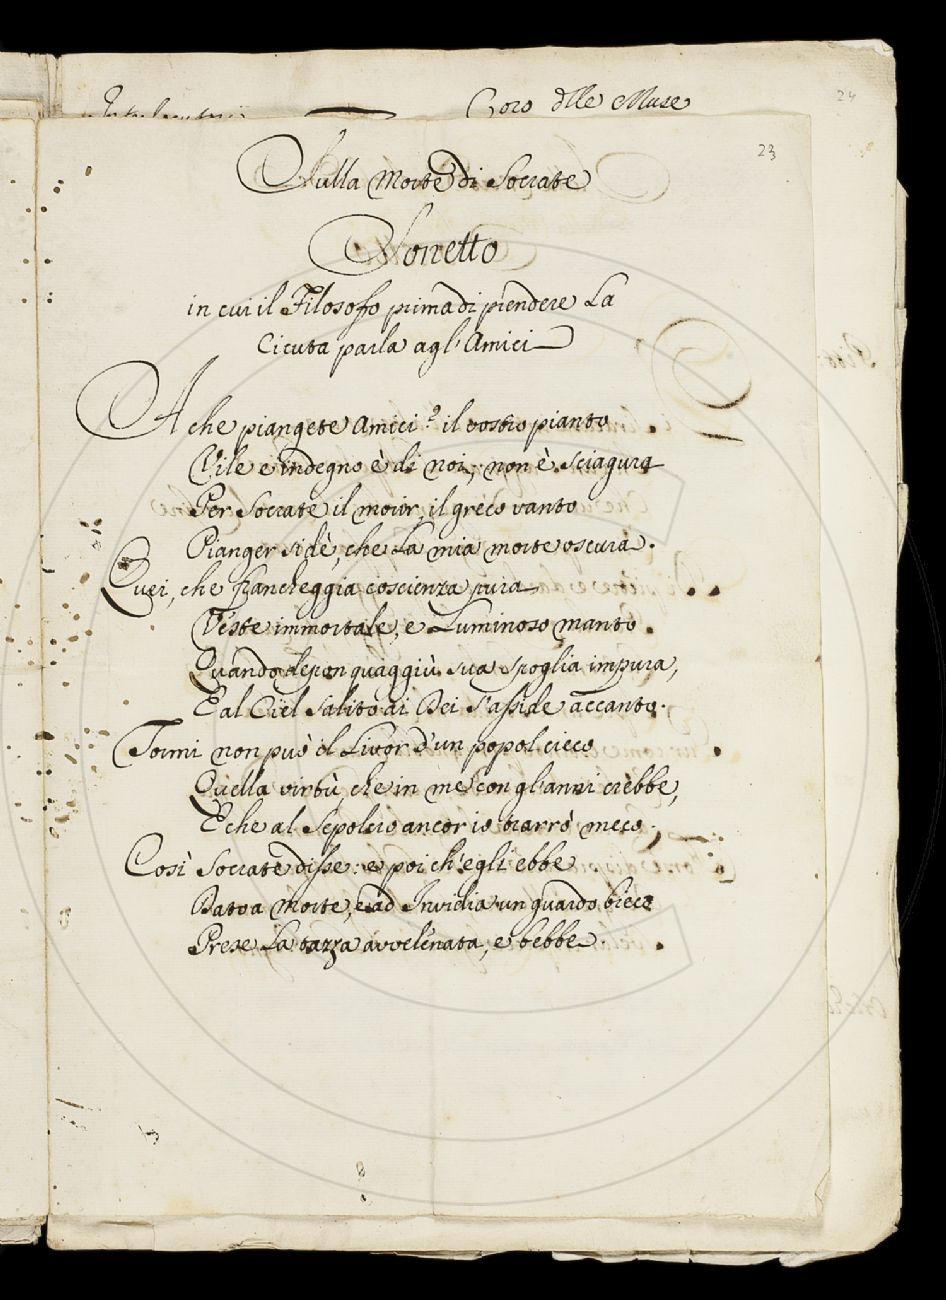 24
Coro dlle Muse
23
Sulla Morte di Socrate
Sonetto
in cui il Filosofo prima di prendere la
Cicuta parla agl'Amici
A che piangete Amici? il vostro pianto
Vile e indegno è di noi; non è sciagura
Per Socrate il morir; il greco vanto
Pianger si dè, che la mia morte oscura.
Quei, che francheggia coscienza pura
Veste immortale, e luminoso manto
Quando depon quaggiù sua spoglia impura,
E al Ciel salito ai Dei s'asside accanto.
Tormi non può il Livor d'un popol cieco
Quella virtù, che in me con gl'anni crebbe,
E che al Sepolcro ancor io trarrò meco;
Così Socrate disse: e poi ch'egli ebbe
Dato a Morte, e ad Invidia un guardo bieco
Prese la tazza avvelenata, e bebbe.